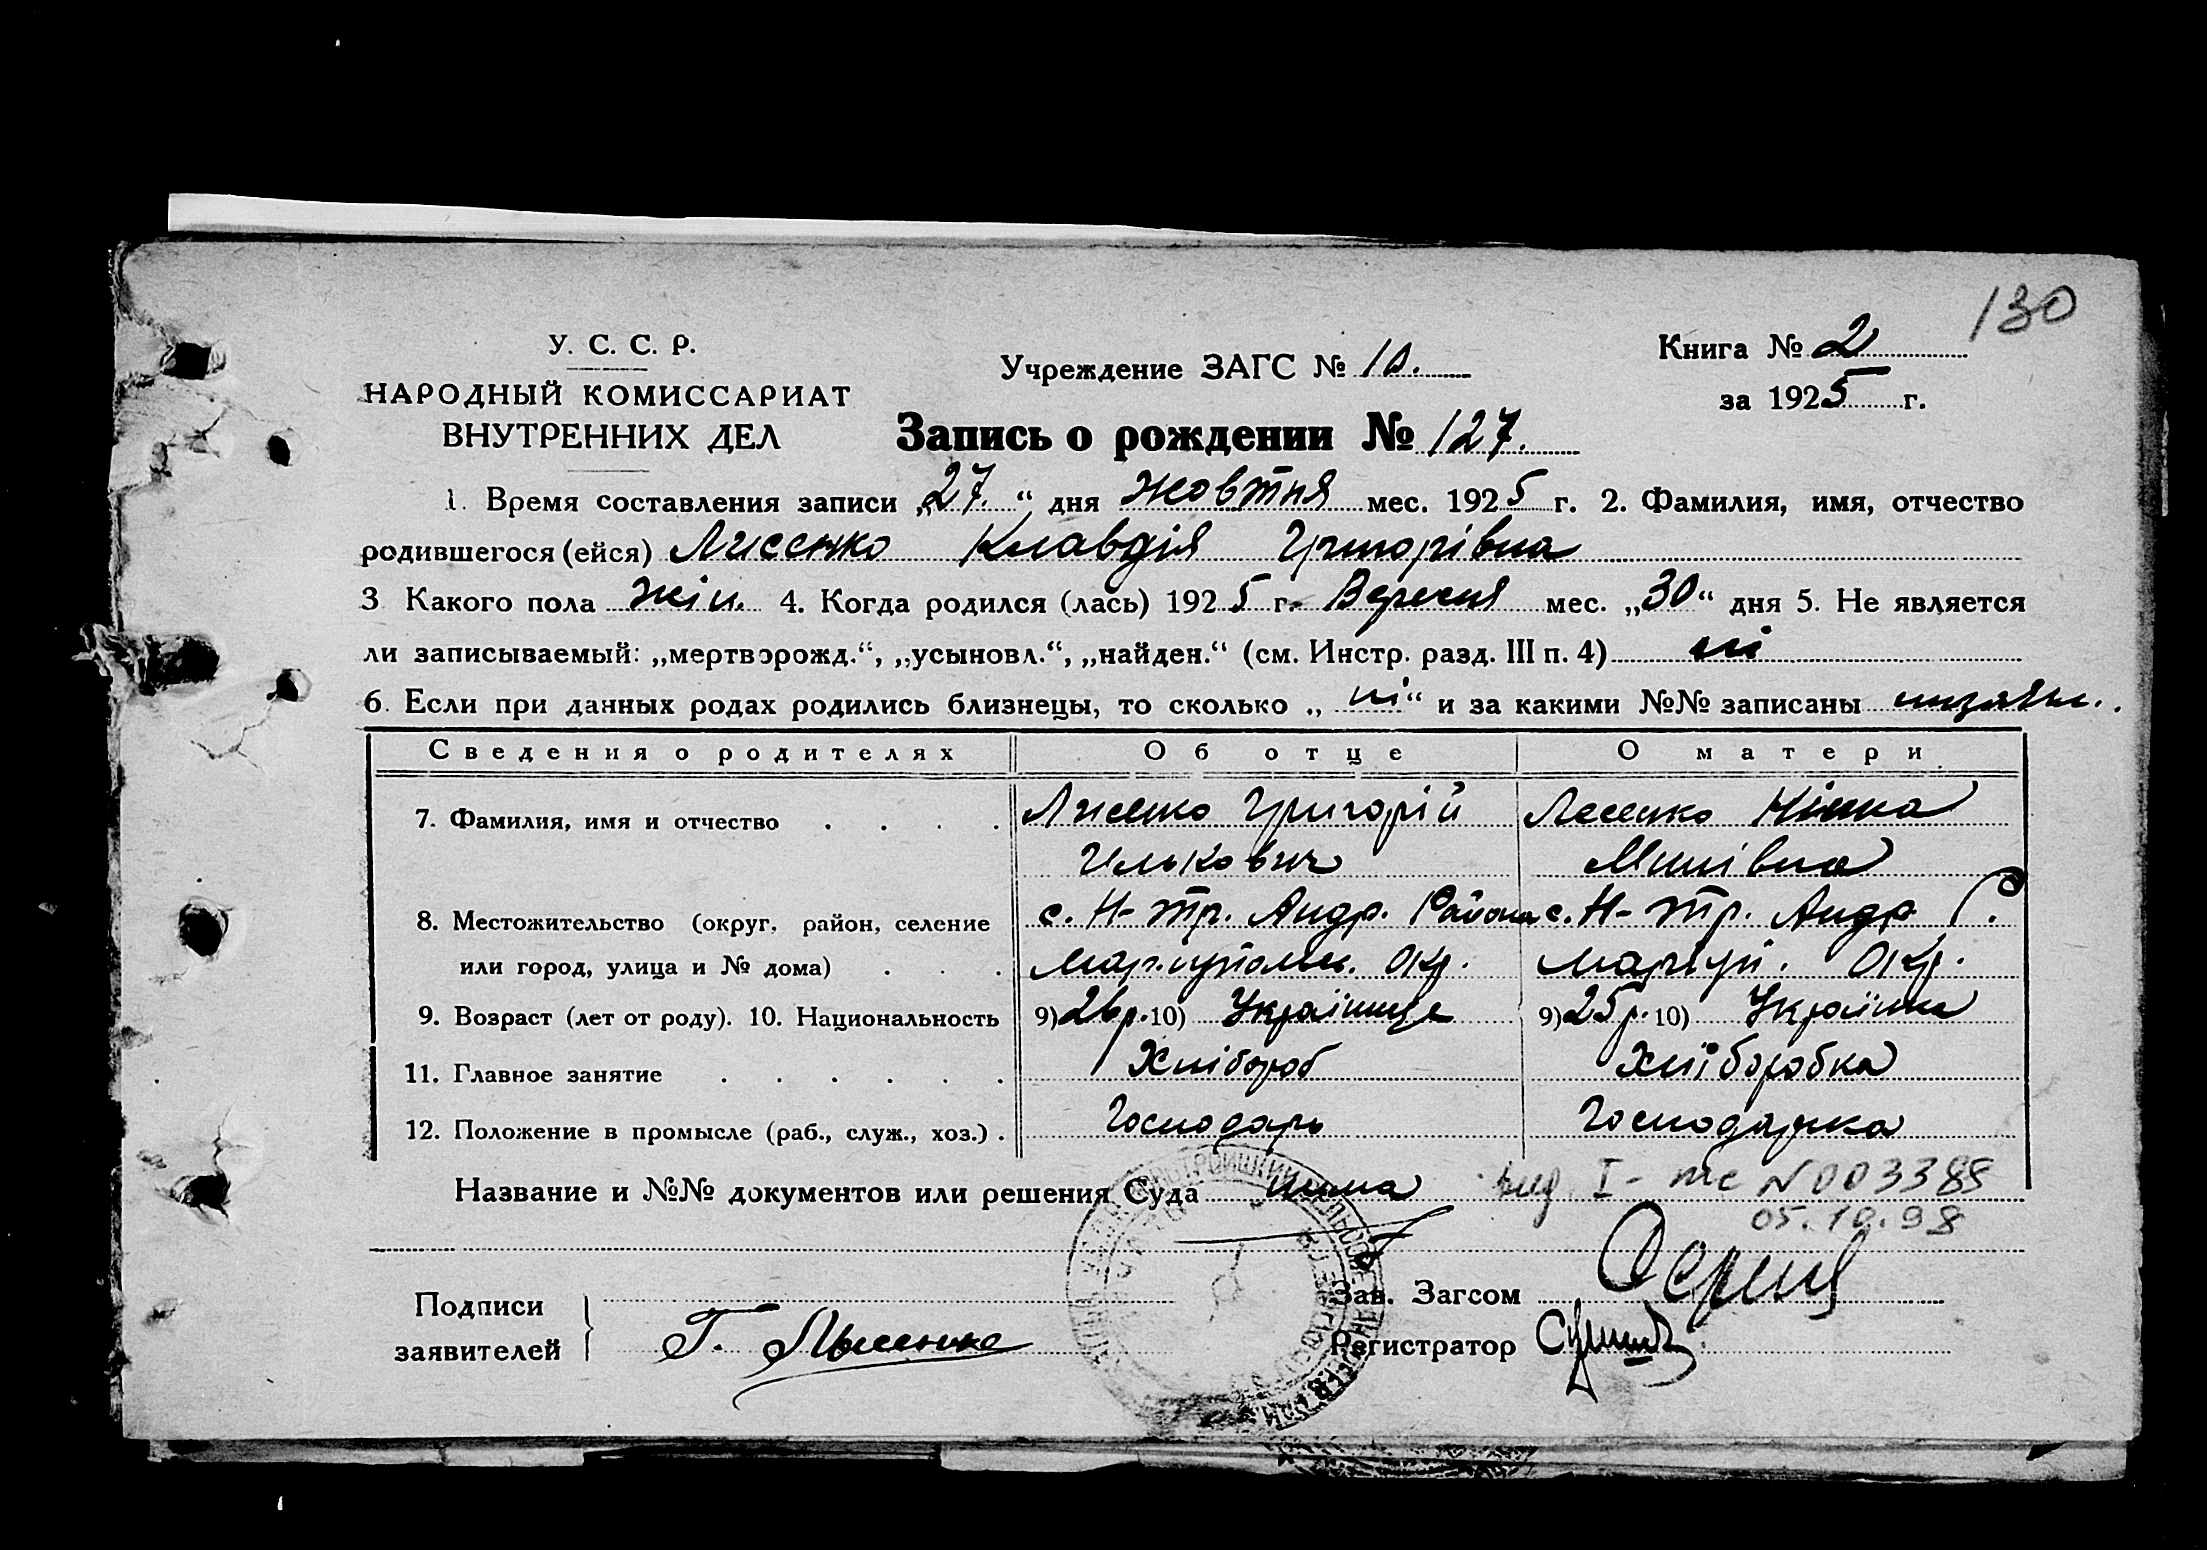 130
У. С. С. Р.
НАРОДНЫЙ КОМИССАРИАТ
ВНУТРЕННИХ ДЕЛ
Учреждение ЗАГС № 10.
Книга № 2
за 1925 г.
Запись о рождении № 127.
1. Время составления записи „27.“ дня Жовтня мес. 1925 г. 2. Фамилия, имя, отчество
родившегося (ейся) Лисенко Клавдія Григорівна
3 Какого пола жін. 4. Когда родился (лась) 1925 г. Вересня мес. „30“ дня 5. Не является
ли записываемый: „мертворожд.“, „усыновл.“, „найден.“ (см. Инстр. разд. III п. 4) ні
6. Если при данных родах родились близнецы, то сколько „ні“ и за какими №№ записаны
Сведения о родителях Об отце О матери
7. Фамилия, имя и отчество . . . . Лисенко Григорій Лесенко
Илькович
8. Местожительство (округ, район, селение с. Н-Тр. Андр. Района с. Н-Тр. Андр. Р.
или город, улица и № дома) . . . Маріупольск. Окр. Маріуп. Окр.
9. Возраст (лет от роду). 10. Национальность 9) 26 р. 10) Українце 9) 25 р. 10) Українка
11. Главное занятие . . . . . . Хлібороб Хліборобка
12. Положение в промысле (раб., служ., хоз.) . Господарь Господарка
Название и №№ документов или решения Суда нима вид. I- № 003385
05.10.98
Подписи
заявителей
Г. Лысенко
Зав. Загсом
Регистратор